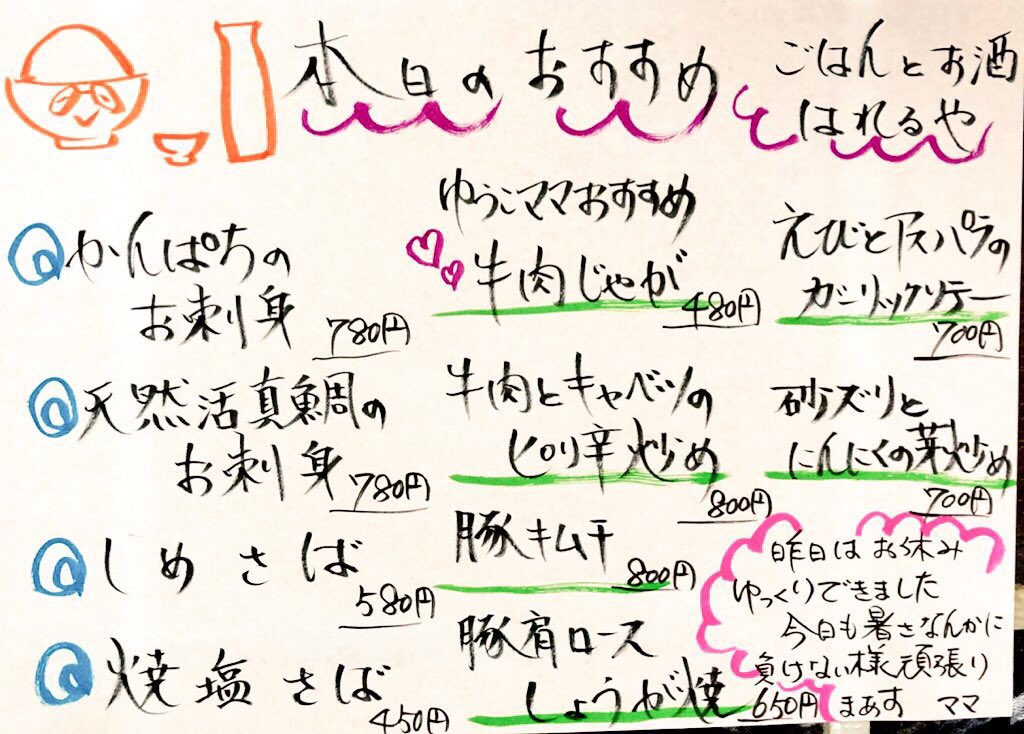 本日のおすすめ
ごはんとお酒
はれるや
かんぱちの
お刺身 780円
天然活真鯛の
お刺身 780円
しめさば
580円
焼塩さば
450円
ゆうこママおすすめ
牛肉じゃが
480円
牛肉とキャベツの
ピリ辛炒め
800円
豚キムチ
800円
豚肩ロース
しょうが焼 650円
えびとアスパラの
ガーリックソテー
700円
砂ズリと
にんにくの芽炒め
700円
昨日はお休み
ゆっくりできました
今日も暑さなんかに
負けない様頑張り
まあす ママ